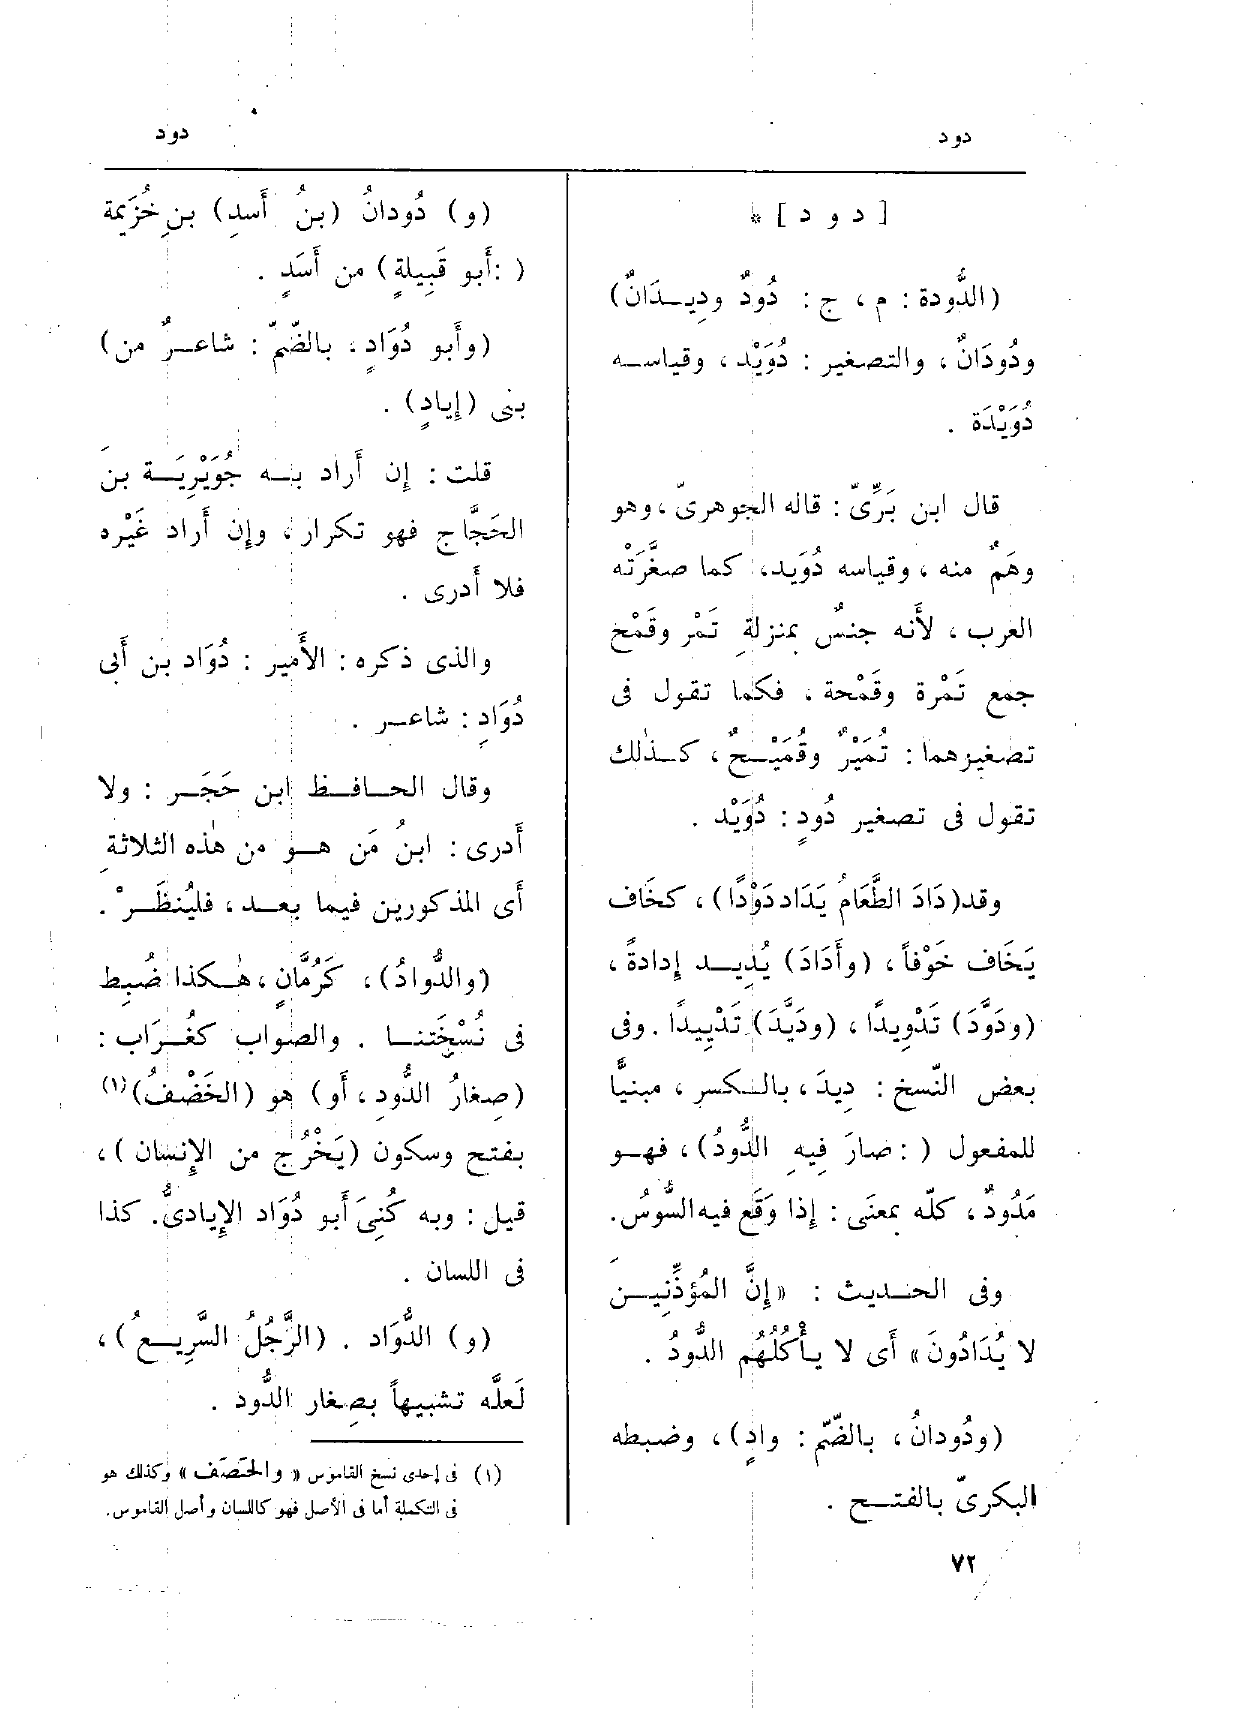 دود
دود
[ د و د ] *
(الدُّودة : م ، ج : دُودٌ ودِيــدَانٌ)
ودُودَانٌ ، والتصغير : دُوَيْد ، وقياســه
دُوَيْدَة .
قال ابن بَرِّىّ : قاله الجوهرىّ ، وهو
وهَمٌ منه ، وقياسه دُوَيد، كما صغَّرَتْه
العرب ، لأَنه جنسٌ بمنزلةِ تَمْر وقَمْح
جمع تَمْرة وقَمْحة ، فكما تقول فى
تصغيرهما : تُمَيْرٌ وقُمَيْــحٌ ، كــذٰلك
تقول فى تصغير دُودٍ : دُوَيْد .
وقد(دَادَ الطَّعَامُ يَدَاد دَوْدًا) ، كخَاف
يَخَاف خَوْفاً ، (وأَدَادَ) يُدِيــد إدادةً ،
(ودَوَّدَ) تَدْوِيدًا ، (ودَيَّدَ) تَدْيِيدًا . وفى
بعض النّسخ : دِيدَ ، بالــكسر ، مبنيًّا
للمفعول ( : صارَ فِيهِ الدُّودُ) ، فهــو
مَدُودٌ ، كلّه بمعنَى : إذا وَقَع فيه السُّوسُ.
وفى الحــديث : «إنَّ المُؤذِّنِيــنَ
لا يُدَادُونَ» أَى لا يــأْكُلُهُم الدُّودُ .
(ودُودانُ ، بالضّمّ : وادٍ) ، وضبطه
البكرىّ بالفتــح .
(و) دُودانُ (بنُ أَسدِ) بنِ خُزَيمة
( :أَبو قَبِيلةٍ) من أَسَدٍ .
(وأَبو دُوَادٍ ، بالضّمّ : شاعــرٌ من)
بنى (إيادٍ) .
قلت : إن أَراد بــه جُوَيْرِيَــة بنَ
الحَجَّاج فهو تكرار ، وإن أَراد غَيْره
فلا أَدرى .
والذى ذكره : الأَمير : دُوَاد بن أَبى
دُوَادٍ : شاعــر .
وقال الحــافــظ ابن حَجَــر : ولا
أَدرى : ابنُ مَن هــو من هٰذه الثلاثةِ
أَى المذكورين فيما بعــد ، فليُنظَــرْ .
(والدُّوادُ) ، كَرُمَّانٍ ، هٰــكذا ضُبِط
فى نُسْخَتِنــا . والصواب كغُــرَاب :
(صِغارُ الدُّودِ ، أَو) هو (الخَضْفُ)(١)
بفتح وسكون (يَخْرُج من الإنسان ) ،
قيل : وبه كُنِىَ أَبو دُوَاد الإياديُّ. كذا
فى اللسان .
(و) الدُّوَاد . (الرَّجُلُ السَّرِيــعُ) ،
لَعلَّه تشبيهاً بصِغار الدُّود .
(١) فى إحدى نسخ القاموس « والخَصَف » وكذلك هو
فى التكملة أما فى الأصل فهو كاللسان وأصل القاموس.
٧٢